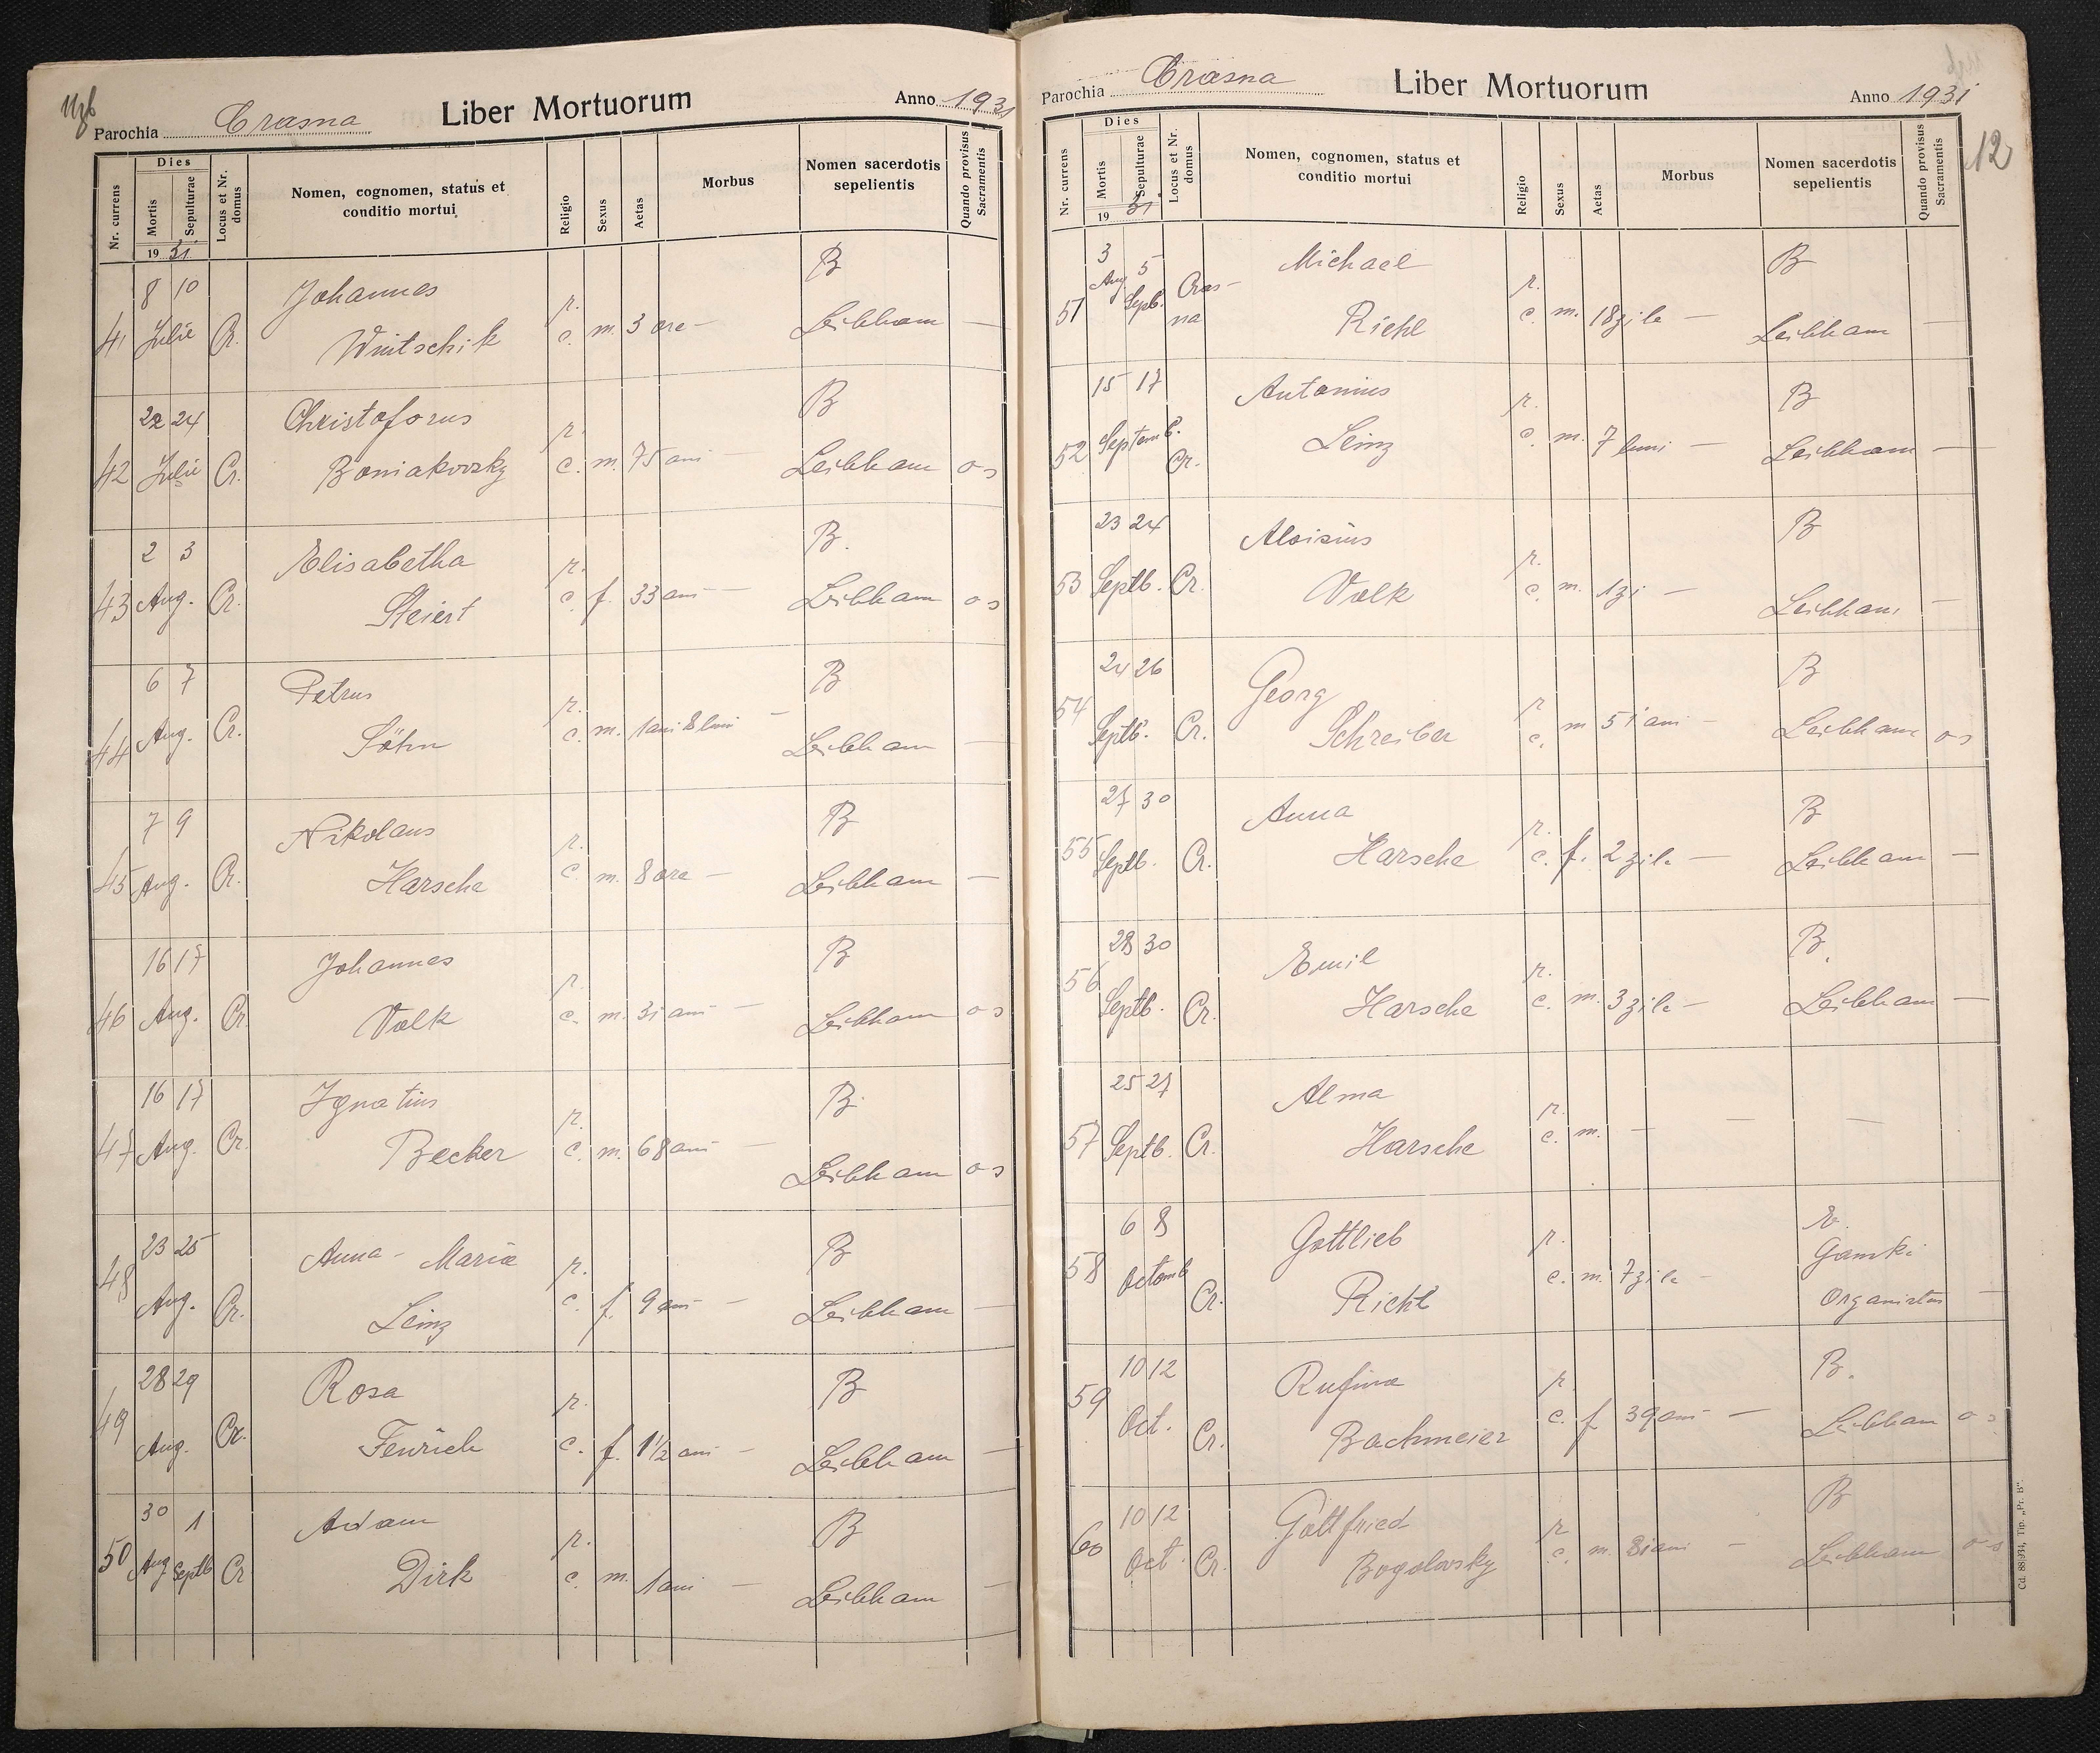 Parochia Crasna Liber Mortuorum Anno 1931
Nr. currens
Dies
Mortis
Sepulturae
1931
Locus et Nr. domus
Nomen, cognomen, status et conditio mortui
Religio
Sexus
Aetas
Morbus
Nomen sacerdotis sepelientis
Quando provisus Sacramentis
41 8 10 Julie Cr. Johannes Wuitschik r. c. m. 3 ore — B Leibham —
42 22 24 Julie Cr. Christoforus Boniakovsky r. c. m. 75 ani — B Leibham os
43 2 3 Aug. Cr. Elisabetha Steiert r. c. f. 33 ani — B. Leibham os
44 6 7 Aug. Cr. Petrus Söhn r. c. m. 1 ani 8 luni — B Leibham —
45 7 9 Aug. Cr. Nikolaus Harsche r. c. m. 8 ore — B Leibham —
46 16 17 Aug. Cr. Johannes Volk r. c. m. 31 ani — B Leibham os
47 16 17 Aug. Cr. Ignatius Becker r. c. m. 68 ani — B. Leibham os
48 23 25 Aug. Cr. Anna-Maria Leinz r. c. f. 9 ani — B Leibham —
49 28 29 Aug. Cr. Rosa Fenrich r. c. f. 1 1/2 ani — B Leibham —
50 30 Aug 1 Septb Cr Adam Dirk r. c. m. 1 ani — B Leibham —
Parochia Crasna Liber Mortuorum Anno 1931
12
Nr. currens
Dies
Mortis
Sepulturae
1931
Locus et Nr. domus
Nomen, cognomen, status et conditio mortui
Religio
Sexus
Aetas
Morbus
Nomen sacerdotis sepelientis
Quando provisus Sacramentis
51 3 Aug. 5 Septb. Crasna Michael Riehl r. c. m. 18 zile — B Leibham —
52 15 17 Septemb. Cr. Antonius Leinz r. c. m. 7 luni — B Leibham —
53 23 24 Septb. Cr. Aloisius Volk r. c. m. 1 zi — B Leibham —
54 24 26 Septb. Cr. Georg Schreiber r c. m 51 ani — B Leibham os
55 27 30 Septb. Cr. Anna Harsche r. c. f. 2 zile — B Leibham —
56 28 30 Septb. Cr. Emil Harsche r. c. m. 3 zile — B. Leibham —
57 25 27 Septb. Cr. Alma Harsche r. c. m. — — —
58 6 8 Octomb Cr. Gottlieb Riehl r. c. m. 7 zile — Organistus —
59 10 12 Oct. Cr. Rufina Bachmeier r. c. f 39 ani — B. Leibham os
60 10 12 Oct. Cr. Gottfried Bogolovsky r. c. m. 81 ani — B Leibham os
Cd. 88931, Tip. „Pr. B".